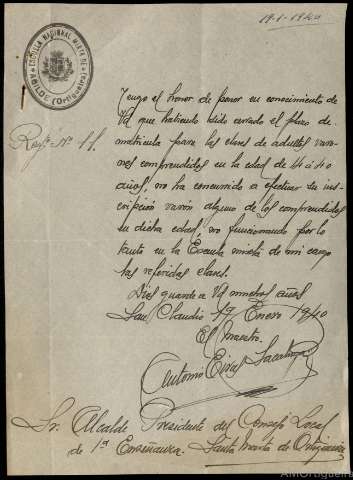 19-1-1940
ESCUELA NACIONAL MIXTA DE
(Ortigueira)
Regto. nº 11.
Tengo el honor de poner en conocimiento de
Vd que habiendo sido cerrado el plazo de
matrícula para las clases de adultos varo-
nes comprendidos en la edad de 14 a 40
años, no ha concurrido a efectuar su ins-
cripción varón alguno de los comprendidos
en dicha edad, no funcionando por lo
tanto en la Escuela mixta de mi cargo
las referidas clases.
Dios guarde a Vd muchos años
San Claudio 19 Enero 1940
El Maestro
Antonio
Sr. Alcalde Presidente del Consejo Local
de 1ª Enseñanza. Santa Marta de Ortigueira
AMOrtigueira